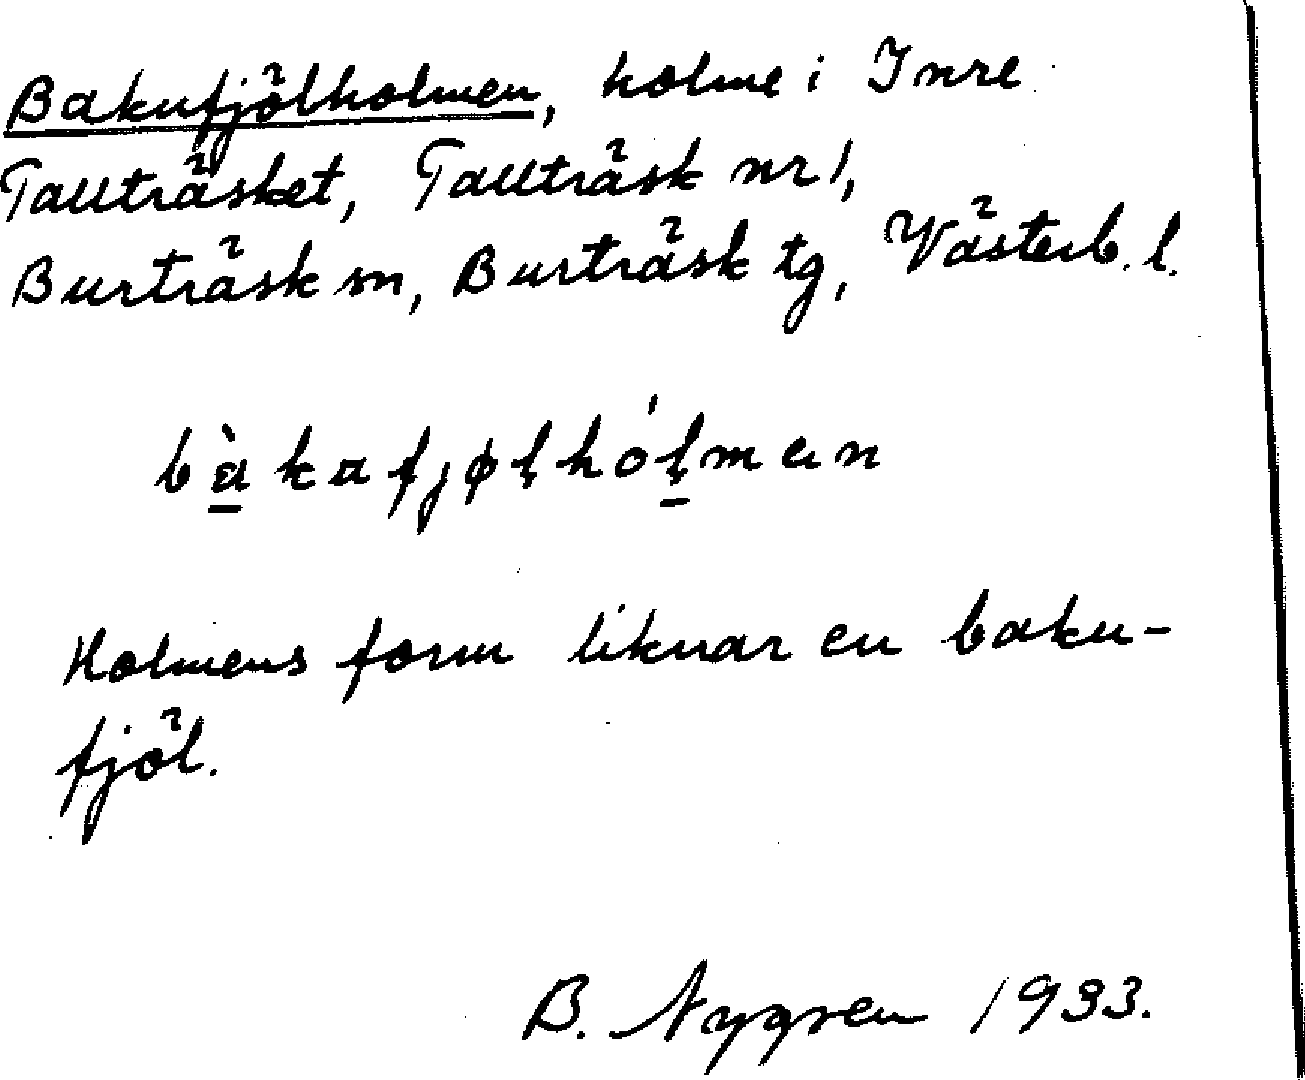 Bakufjölholmen, holme i Inre
Tallträsket, Tallträsk nr 1,
Burträsk sn, Burträsk tg, Västerb. l.
bàkafjøl̩hól̩mɐn
Holmens form liknar en baku-
fjöl.
B. Nygren 1933.